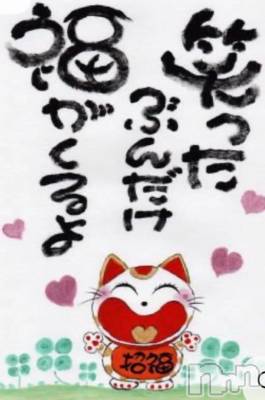 笑った
ぶんだけ
福が
くるよ
招福